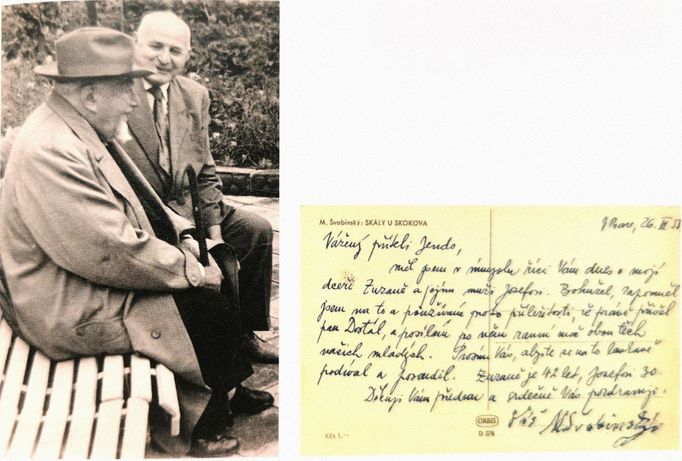 M. Švabinský: SKÁLY U SKOKOVA
V Praze, 26. III. 58
Vážený příteli Jendo,
měl jsem v úmyslu říci Vám dnes o mojí
dceři Zuzaně a jejím muži Josefovi. Bohužel, zapomněl
jsem na to a používám proto příležitosti, že právě přišel
pan Dostál, a posílám po něm ranní moč obou těch
našich mladých. Prosím Vás, abyste se na to laskavě
podíval a posoudil. Zuzaně je 42 let, Josefovi 30.
Děkuji Vám předem a srdečně Vás pozdravuji.
Váš MŠvabinský
ORBIS
Kčs 1,–
D 378